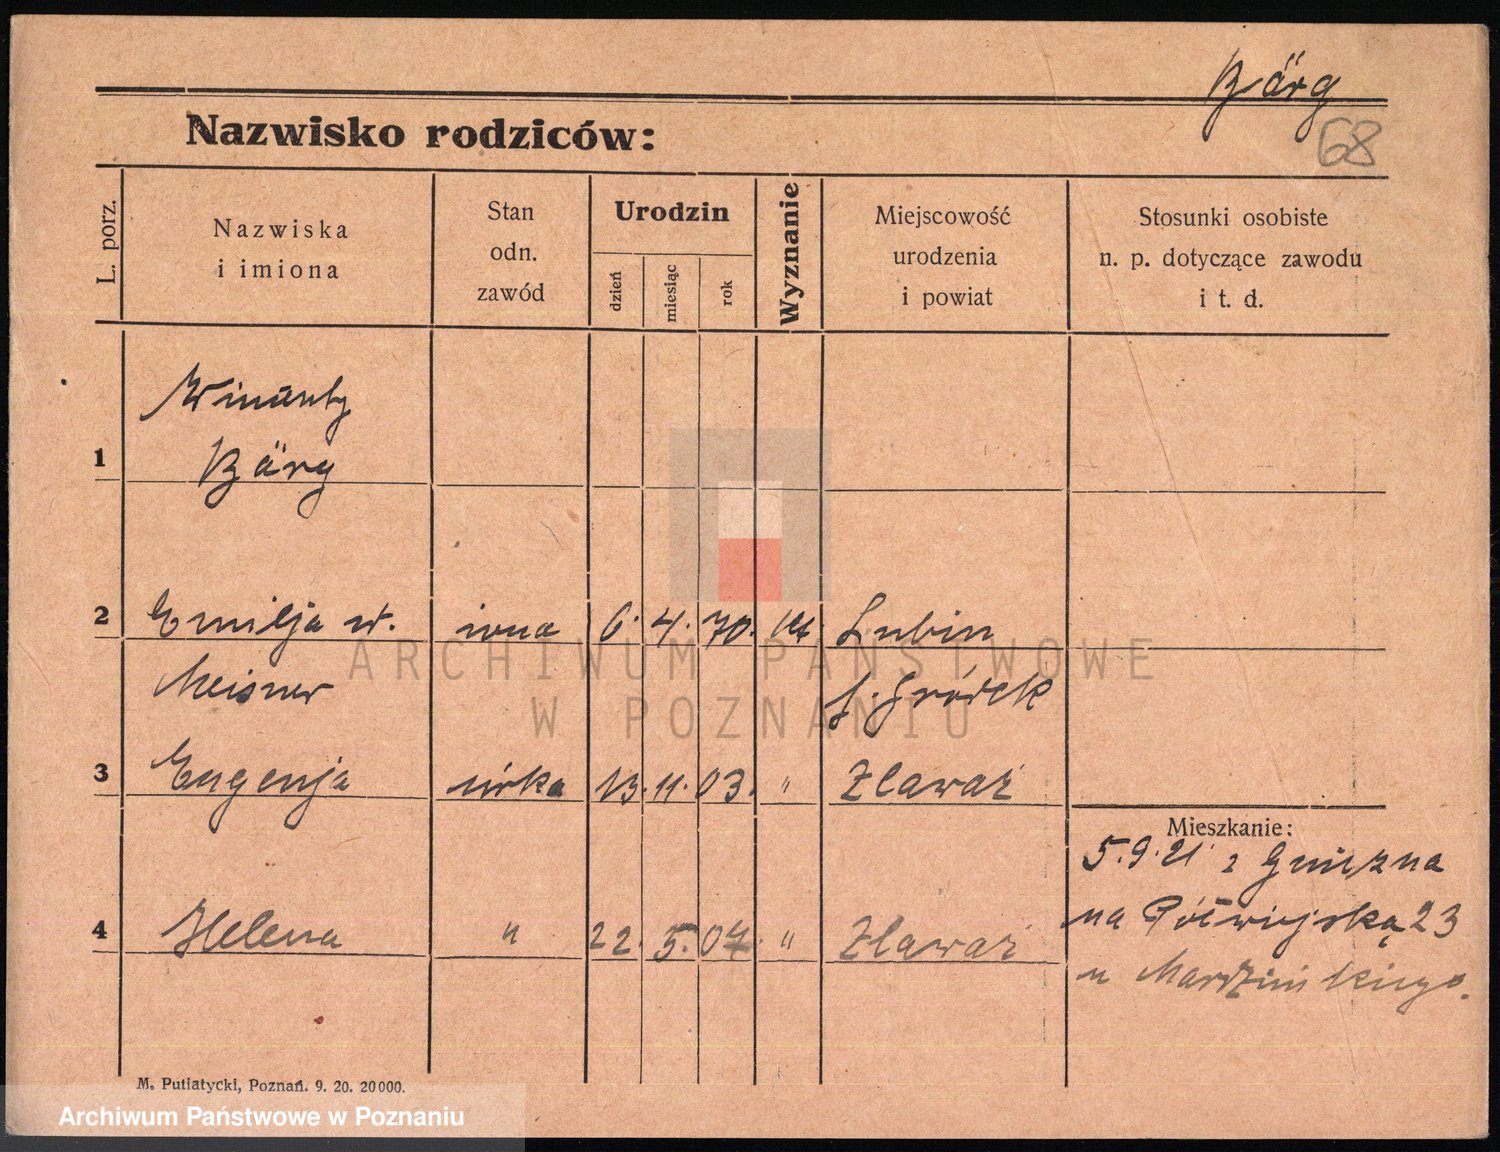 Bärg
68
Nazwisko rodziców:
L. porz.
Nazwiska
i imiona
Stan
odn.
zawód
Urodzin
dzień
miesiąc
rok
Wyznanie
Miejscowość
urodzenia
i powiat
Stosunki osobiste
n. p. dotyczące zawodu
i t. d.
1
Bärg
2 Emilja w. 6. 4. 70. Lubin
Meisner
3 Eugenja córka 13. 11. 03. "
4 Helena " 22. 5. 04. "
Mieszkanie:
5.9.21 z Gniezna
na Półwiejską 23
u
M. Putiatycki, Poznań. 9. 20. 20000.
ARCHIWUM PAŃSTWOWE
W POZNANIU
Archiwum Państwowe w Poznaniu